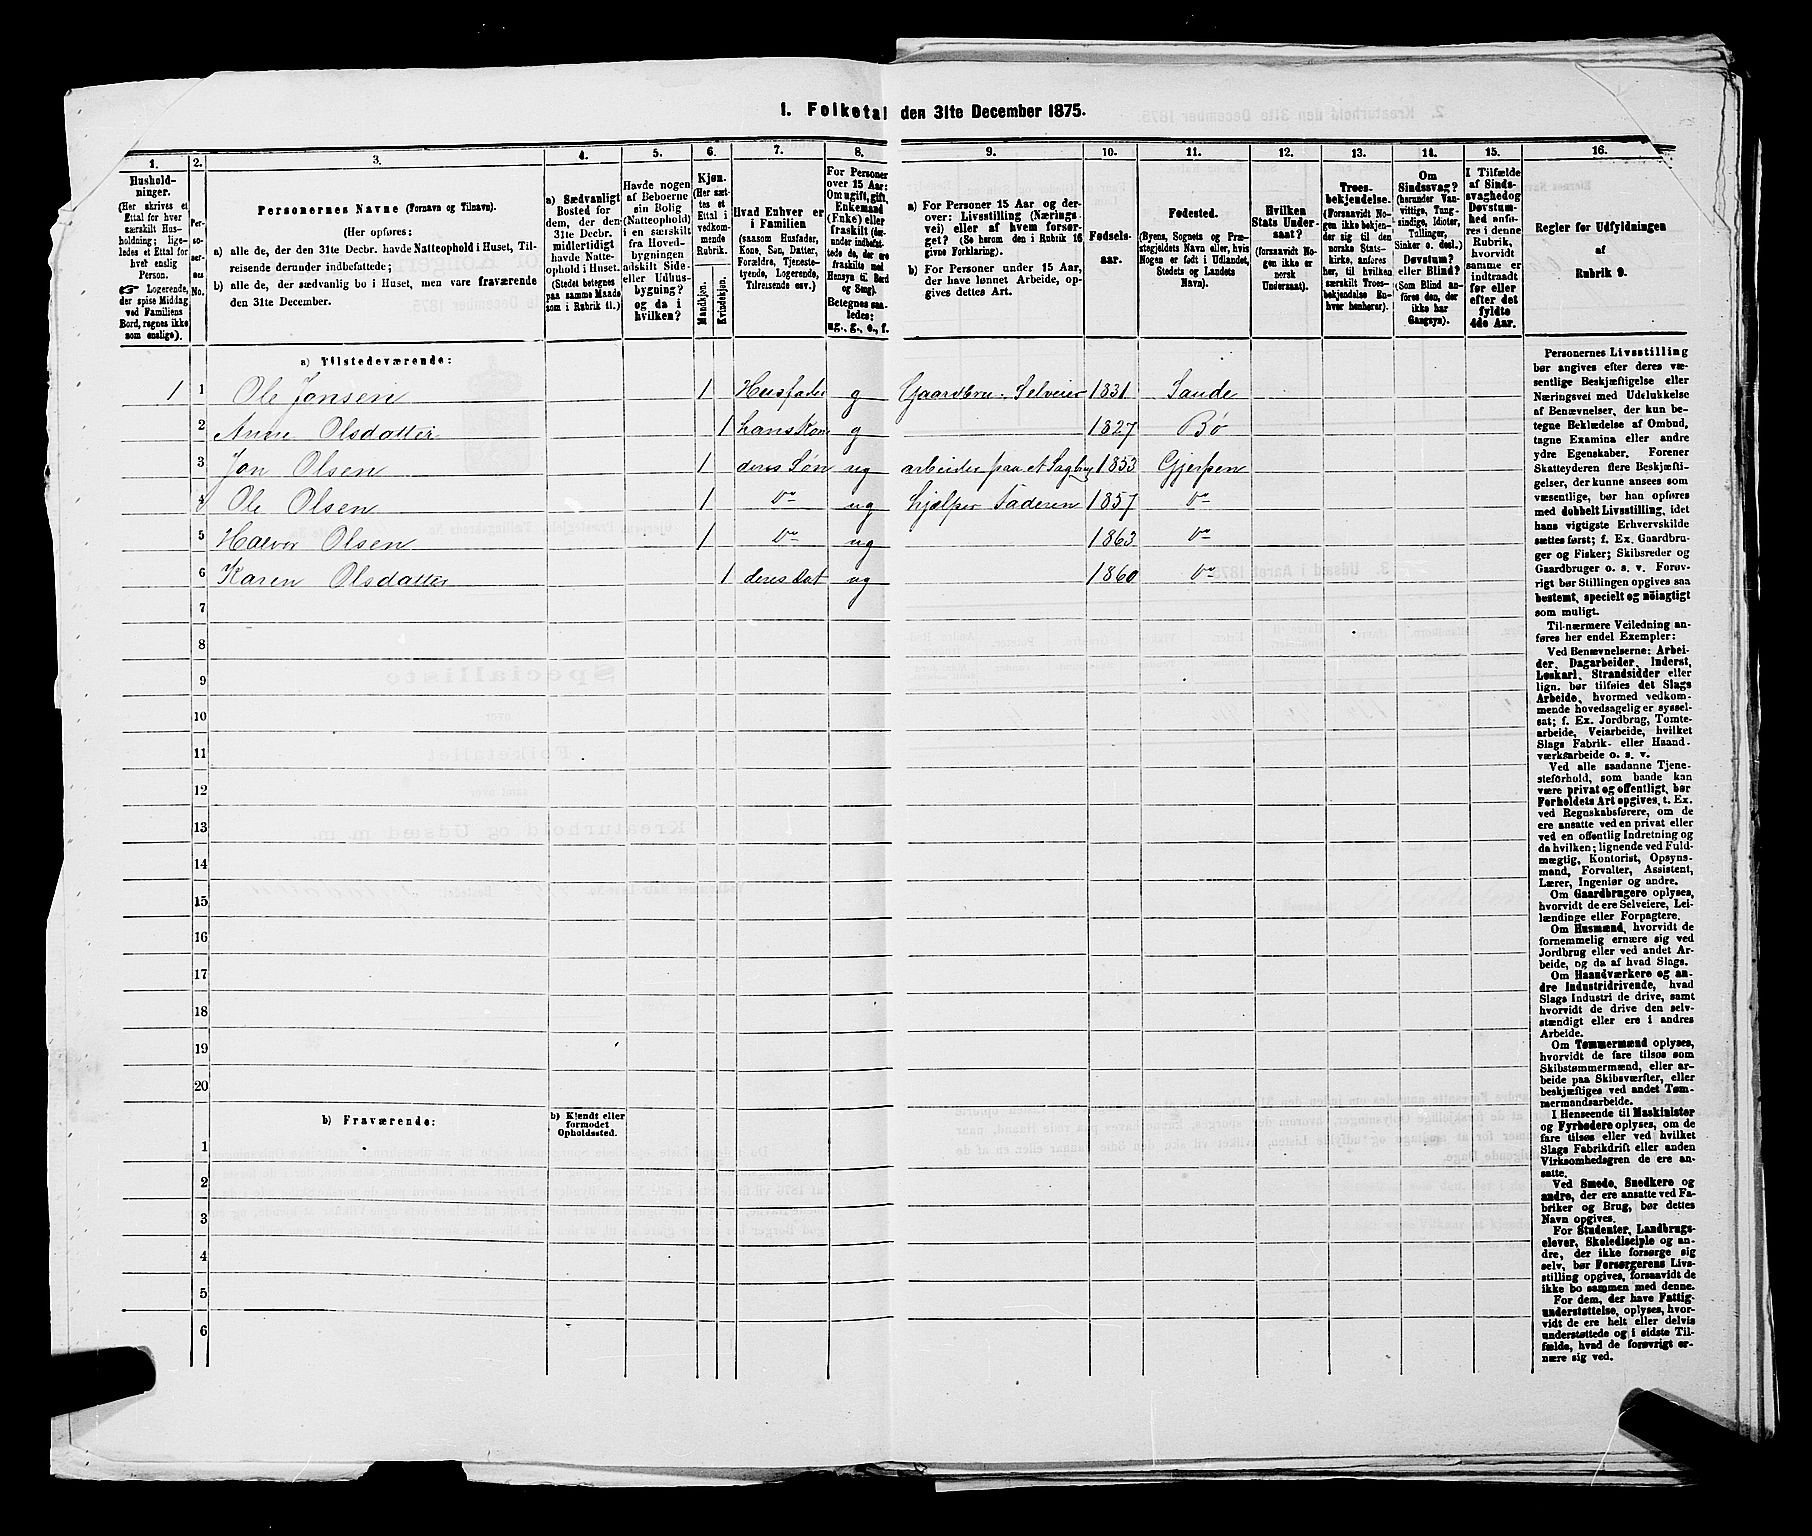 1. Folketal den 31te December 1875.
1. 2. 3. 4. 5. 6. 7. 8. 9. 10. 11. 12. 13. 14. 15. 16.
Hushold-
ninger.
(Her skrives et
Ettal for hver
særskilt Hus-
holdning; lige-
ledes et Ettal for
hver enslig
Person.
Logerende,
der spise Middag
ved Familiens
Bord, regnes ikke
som enslige).
Per-
so-
ner-
nes
No.
Personernes Navne (Fornavn og Tilnavn).
(Her opføres:
a) alle de, der den 31te Decbr. havde Natteophold i Huset, Til-
reisende derunder indbefattede;
b) alle de, der sædvanlig bo i Huset, men vare fraværende
den 31te December.
a) Sædvanligt
Bosted for
dem, der den
31te Decbr.
midlertidigt
havde Natte-
ophold i Huset.
(Stedet betegnes
paa samme Maade
som i Rubrik 11.)
Havde nogen
af Beboerne
sin Bolig
(Natteophold)
i en særskilt
fra Hoved-
bygningen
adskilt Side-
eller Udhus-
bygning?
og da i
hvilken?
Kjøn.
(Her sæt-
tes et
Ettal i
vedkom-
mende
Rubrik.
Mandkjøn.
Kvindekjøn.
Hvad Enhver er
i Familien
(saasom Husfader,
Kone, Søn, Datter,
Forældre, Tjeneste-
tyende, Logerende,
Tilreisende osv.)
For Personer
over 15 Aar:
Om ugift, gift,
Enkemand
(Enke) eller
fraskilt (der-
under indbefat-
tede de, der ere
fraskilte med
Hensyn til Bord
og Seng).
Betegnes saa-
ledes:
ug., g., e., f.
a) For Personer 15 Aar og der-
over: Livsstilling (Nærings-
vei) eller af hvem forsør-
get? (Se herom den i Rubrik 16
givne Forklaring).
b) For Personer under 15 Aar,
der have lønnet Arbeide, op-
gives dettes Art.
Fødsels-
aar.
Fødested.
(Byens, Sognets og Præ-
stegjeldets Navn eller, hvis
Nogen er født i Udlandet,
Stedets og Landets
Navn).
Hvilken
Stats Under-
saat?
(forsaavidt No-
gen ikke er
norsk
Undersaat).
Troes-
bekjendelse.
(Forsaavidt No-
gen ikke bekjen-
der sig til den
norske Stats-
kirke, anføres
her, til hvilken
særskilt Troes-
bekjendelse En-
hver henhører).
Om
Sindssvag?
(herunder Van-
vittige, Tung-
sindige, Idioter,
Tullinger,
Sinker o. desl.)
Døvstum?
eller Blind?
(Som Blind an-
føres den, der
ikke har
Gangsyn).
I Tilfælde
af Sinds-
svaghed og
Døvstum-
hed anfø-
res i denne
Rubrik,
hvorvidt
samme er
indtraadt
før eller
efter det
fyldte
4de Aar.
Regler for Udfyldningen
af
Rubrik 9.
a) Tilstedeværende:
1 1 Ole Jonsen 1 Husfader g Gaardbru. Selveier 1831 Sande
2 Anne Olsdatter 1 hans Kone g 1827 Bö
3 Jon Olsen 1 deres Sön ug arbeider paa et Sagbrug 1853 Gjerpen
4 Ole Olsen 1 Do ug hjælper Faderen 1857 Do
5 Halvor Olsen 1 Do ug 1863 Do
6 Karen Olsdatter 1 deres dat ug 1860 Do
7
8
9
10
11
12
13
14
15
16
17
18
19
20
b) Fraværende:
b) Kjendt eller
formodet
Opholdssted.
1
2
3
4
5
6
Personernes Livsstilling
bør angives efter deres væ-
sentlige Beskjæftigelse eller
Næringsvei med Udelukkelse
af Benævnelser, der kun be-
tegne Beklædelse af Ombud,
tagne Examina eller andre
ydre Egenskaber. Forener
Skatteyderen flere Beskjæfti-
gelser, der kunne ansees som
væsentlige, bør han opføres
med dobbelt Livsstilling, idet
hans vigtigste Erhvervskilde
sættes først; f. Ex. Gaardbru-
ger og Fisker; Skibsreder og
Gaardbruger o. s. v. Forøv-
rigt bør Stillingen opgives saa
bestemt, specielt og nöiagtigt
som muligt.
Til nærmere Veiledning an-
føres her endel Exempler:
Ved Benævnelserne: Arbei-
der, Dagarbeider, Inderst,
Løskarl, Strandsidder eller
lign. bør tilføies det Slags
Arbeide, hvormed vedkom-
mende hovedsagelig er syssel-
sat; f. Ex. Jordbrug, Tomte-
arbeide, Veiarbeide, hvilket
Slags Fabrik- eller Haand-
værksarbeide o. s. v.
Ved alle saadanne Tjene-
steforhold, som baade kan
være privat og offentligt, bør
Forholdets Art opgives, t. Ex.
ved Regnskabsførere, om de
ere ansatte ved en privat eller
ved en offentlig Indretning og
da hvilken; lignende ved Fuld-
mægtig, Kontorist, Opsyns-
mand, Forvalter, Assistent,
Lærer, Ingeniør og andre.
Om Gaardbrugere oplyses,
hvorvidt de ere Selveiere, Lei-
lændinge eller Forpagtere.
Om Husmænd, hvorvidt de
fornemmelig ernære sig ved
Jordbrug eller ved andet Ar-
beide, og da af hvad Slags.
Om Haandværkere og an-
dre Industridrivende, hvad
Slags Industri de drive, samt
hvorvidt de drive den selv-
stændigt eller ere i andres
Arbeide.
Om Tømmermænd oplyses,
hvorvidt de fare tilsøs som
Skibstømmermænd, eller ar-
beide paa Skibsværfter, eller
beskjæftiges ved andet Tøm-
mermandsarbeide.
I Henseende til Maskinister
og Fyrbødere oplyses, om de
fare tilsøs eller ved hvilket
Slags Fabrikdrift eller anden
Virksomhedsgren de ere an-
satte.
Ved Smede, Snedkere og
andre, der ere ansatte ved Fa-
briker og Brug, bør dettes
Navn opgives.
For Studenter, Landbrugs-
elever, Skoledisciple og an-
dre, der ikke forsørge sig
selv, bør Forsørgerens Livs-
stilling opgives, forsaavidt de
ikke bo sammen med denne.
For dem, der have Fattig-
understøttelse, oplyses, hvor-
vidt de ere helt eller delvis
understøttede og i sidste Til-
fælde, hvad de forøvrigt er-
nære sig ved.